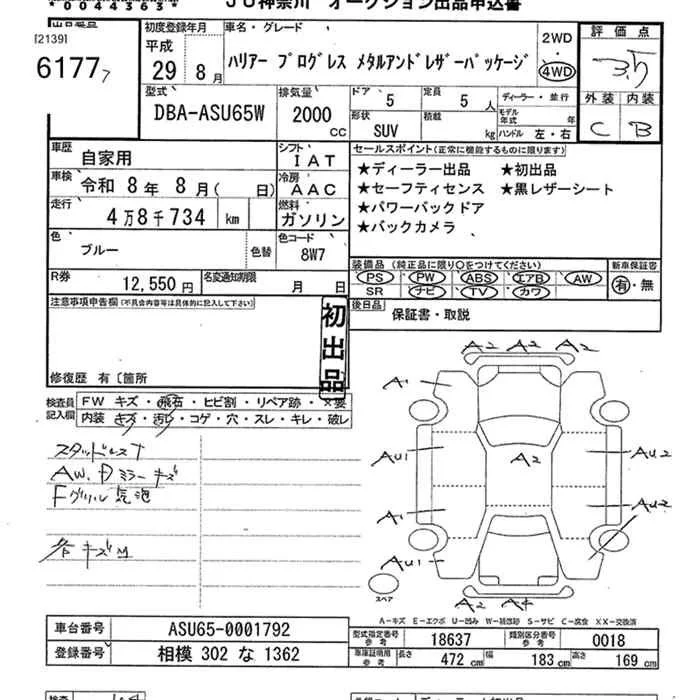 *0044363*
JU神奈川 オークション出品申込書
[2139]
6177
初度登録年月
平成
29年 8月
車名・グレード
ハリアー プログレス メタルアンドレザーパッケージ
2WD
4WD
評価点
3.5
外装 内装
C B
型式
DBA-ASU65W
排気量
2000
CC
ドア
5
定員
5人
形状
SUV
積載
kg
ディーラー・並行
モデル年式 年
ハンドル 左・右
車歴
自家用
シフト
IAT
車検
令和 8年 8月( 日)
冷房
AAC
走行
4万8千734 km
燃料
ガソリン
色
ブルー
色替
色コード
8W7
セールスポイント(正常に機能するものに限ります)
★ディーラー出品 ★初出品
★セーフティセンス ★黒レザーシート
★パワーバックドア
★バックカメラ
装備品 (純正品に限り○をつけてください)
PS PW ABS エアB AW
SR ナビ TV カワ
新車保証書
有・無
R券
12,550円
名変通知期限
月 日
後日品
保証書・取説
注意事項申告欄(不具合内容等は具体的に記入して下さい)
初出品
修復歴 有〔箇所
検査員記入欄
FW キズ・飛石・ヒビ割・リペア跡・X要
内装 キズ・汚れ・コゲ・穴・スレ・キレ・破レ
スタッドレスT
AW. Dミラーキズ
Fグリル気泡
各キズM
A2 A2 A2
A1
AU1 A2 AU2
A1 AU2
AU1
A2 A4
スペア
A-キズ E-エクボ U-凹み W-補修跡 S-サビ C-腐食 XX-交換済
車台番号 ASU65-0001792
登録番号 相模 302 な 1362
型式指定番号 参考 18637
類別区分番号 参考 0018
車庫証明用 参考 長さ 472 cm 幅 183 cm 高さ 169 cm